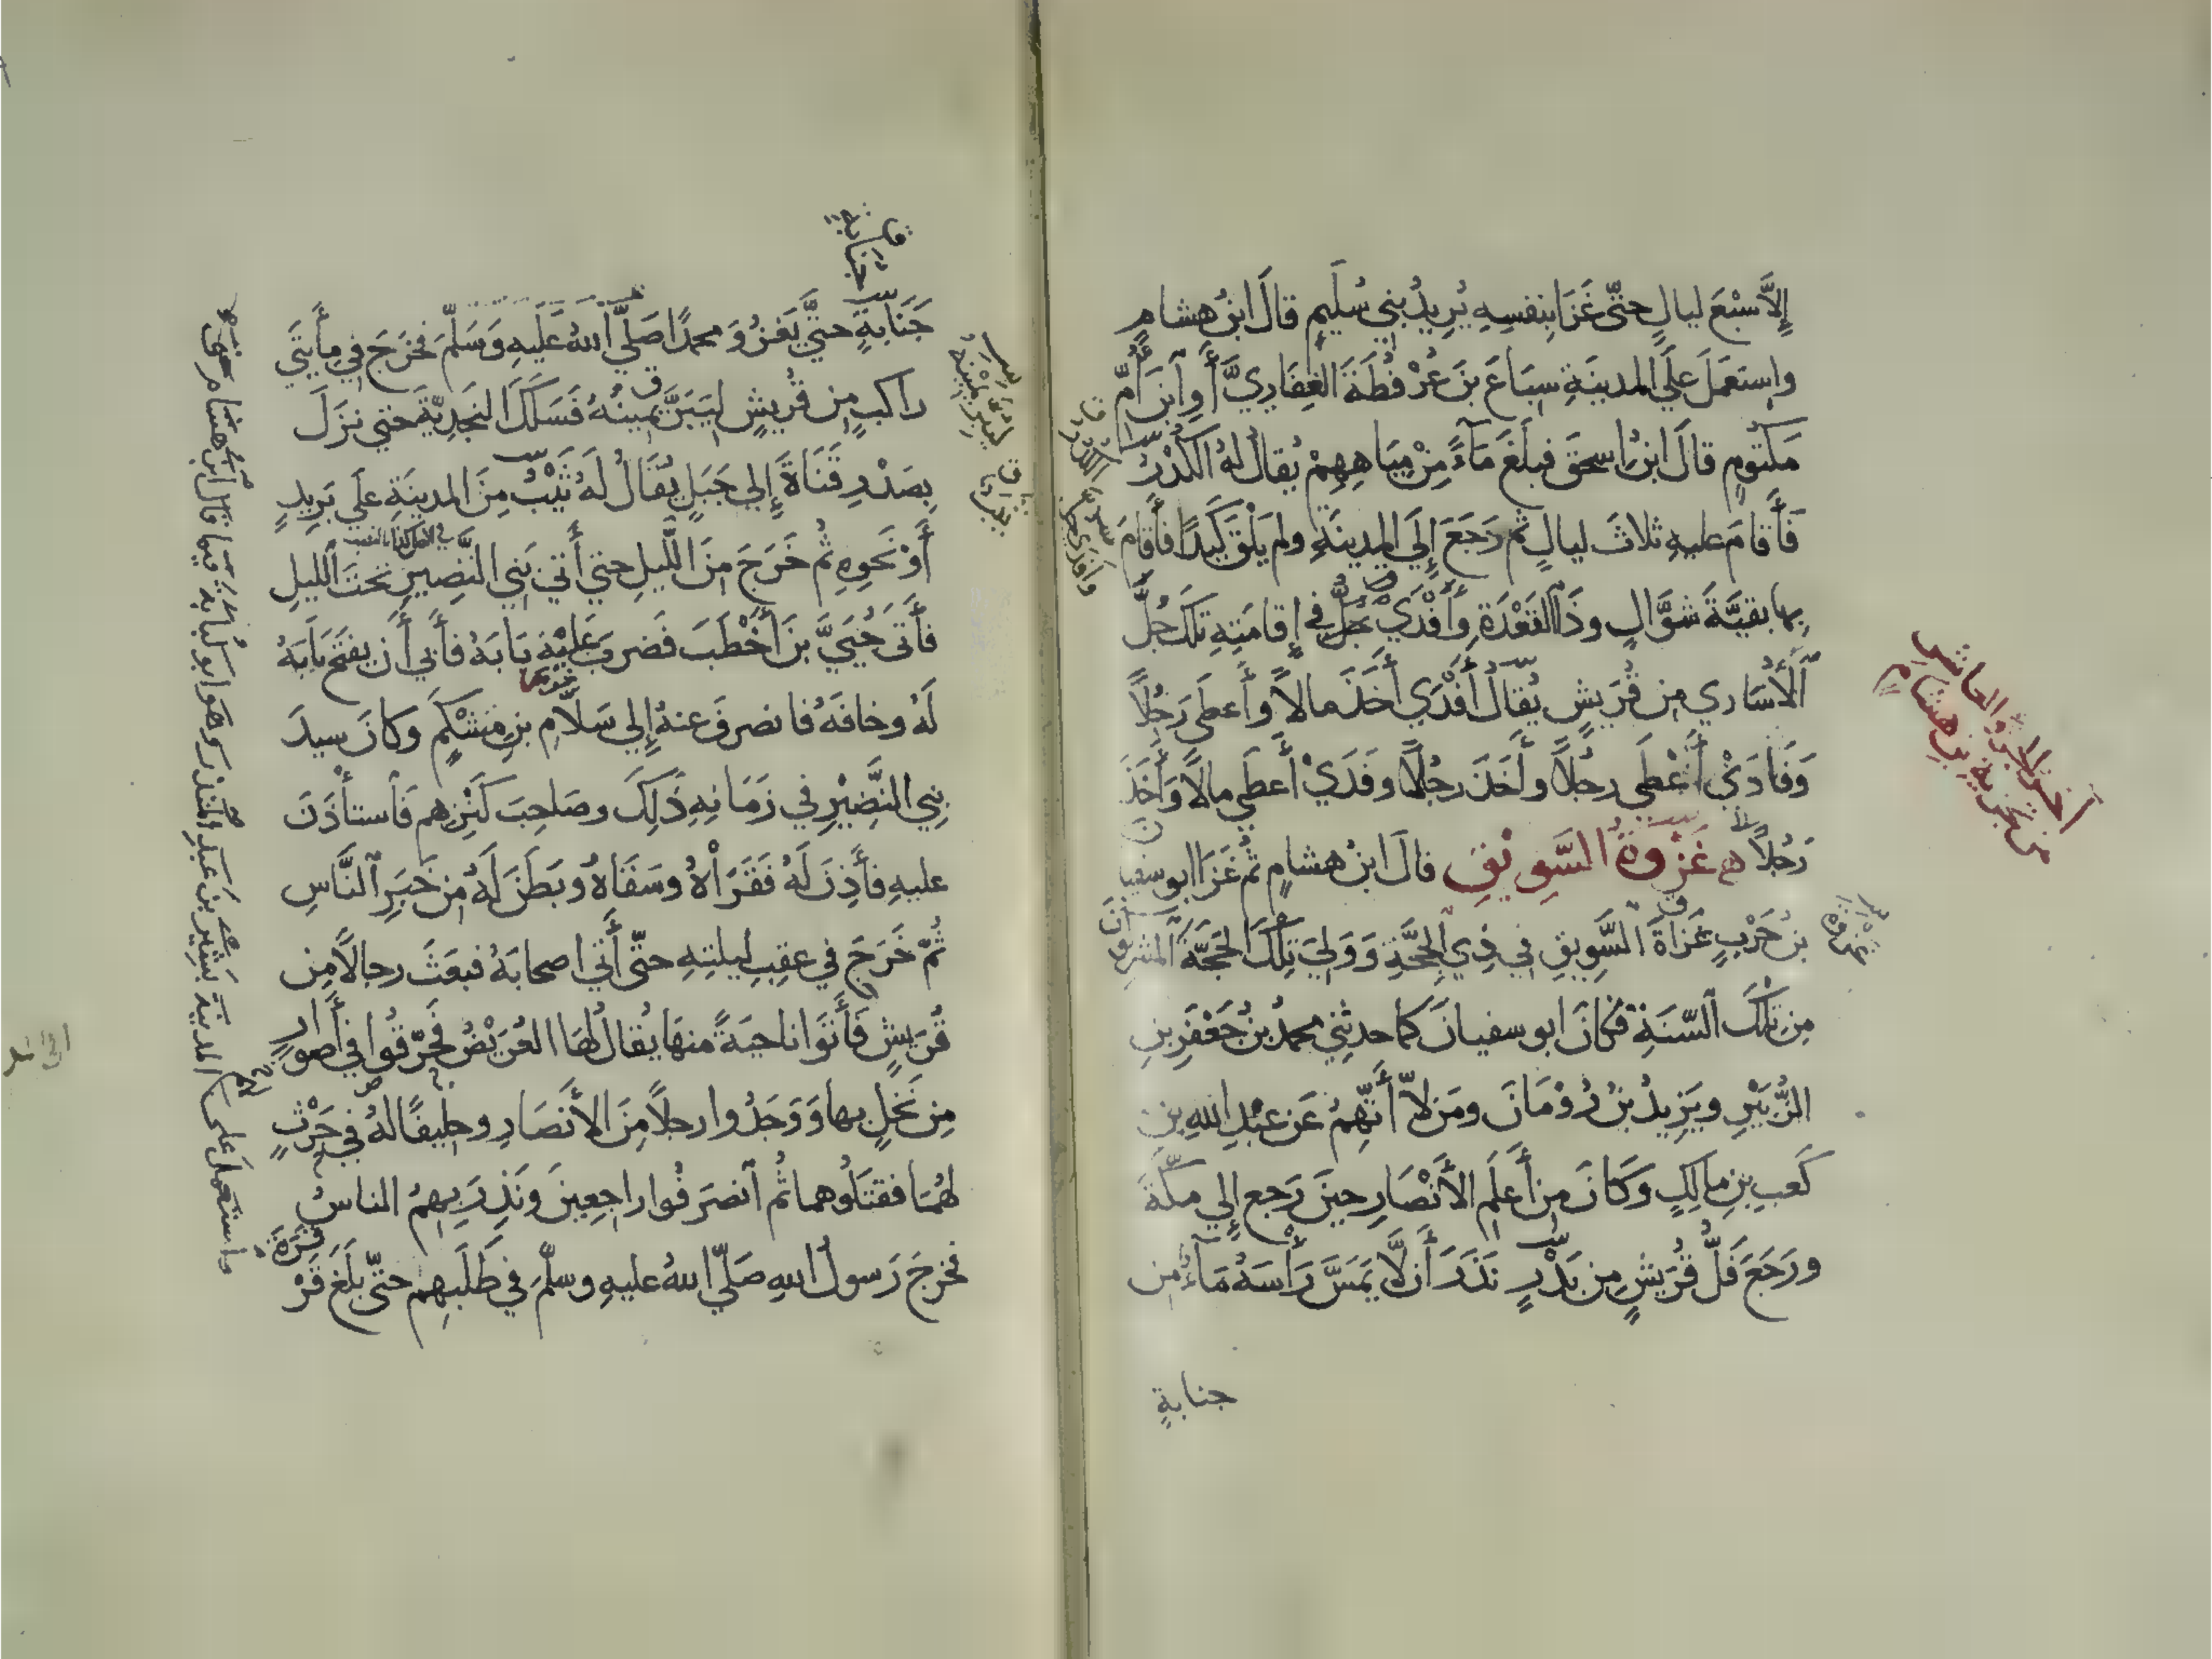 إِلَّا سَبْعَ ليالٍ حتّى غَزَا بِنفسِهِ يُرِيدُ بني سُلَيمٍ قالَ ابنُ هشامٍ
واستَعمَلَ عَلَى المدينَةِ سِبَاعَ بنَ عُرْفُطَةَ الْغِفَارِيَّ أَوِ ٱبنَ أُمِّ
مَكتُومٍ قالَ ابنُ إسحقَ فبلَغَ مَآءً مِنْ مِيَاهِهِمْ يُقالُ لهُ الكُدْرُ
فَأَقامَ عليهِ ثلاثَ ليالٍ ثم رَجَعَ إِلَى المدينَةِ ولم يَلْقَ كَيدًا فأَقامَ
بِها بقيَّةَ شوَّالٍ وذَا القَعْدَةِ وَأَفْدَي في إِقامَتِهِ تلكَ جُلَّ
ٱلْأُسَارِي مِن قُرَيشٍ يُقالُ أَفْدَي أَخَذَ مالاً وأَعطَى رَجُلاً
وَفَادَىْ أَعْطَي رجُلاً وأَخَذَ رجُلاً وفَدَىْ أَعطَي مالاً وَأَخَذَ
رَجُلاً غَزْوَةُ السَّوِيْقِ قالَ ابنُ هشامٍ ثم غَزَا ابو سفيانَ
بنُ حَرْبٍ غَزَاةَ السَّوِيقِ في ذِي الْحِجَّةِ وَوَلِيَ تِلْكَ الحَجَّةَ المشركونَ
مِن تلكَ السّنَةِ فكانَ ابو سفيانَ كما حدثني محمدُ بنُ جَعْفَرِ بنِ
الزُّبَيْرِ ويَزِيدُ بنُ رُوْمَانَ ومَن لَا أَتَّهِمُ عَن عَبْدِ اللهِ بنِ
كَعبِ بنِ مالِكٍ وَكَانَ مِن أَعلَمِ الأَنْصَارِ حينَ رَجع إِلي مكّةَ
ورَجَعَ فَلُّ قُرَيشٍ مِن بَدْرٍ نَذَرَ أَن لَّا يَمَسَّ رَأْسَهُ مَآءٌ من
جنابةٍ
آخر الجزء العاشر
من تجزية ابن هشام
جَنَابَةٍ حتىَّ يَغزُوَ محمدًا صَلَّي اللهُ عَلَيهِ وَسَلَّمَ فخَرَجَ في مِأَيتَي
راكبٍ مِن قُريشٍ لِيَبَرَّ يمينُهُ فَسَلَكَ النجدِيّةَ حتي نزَلَ
بِصَدْرِ قَنَاةَ إِلي جَبَلٍ يُقَالُ لَهُ ثَيْبٌ مِنَ المدينَةِ علَي بَرِيدٍ
أَوْ نَحوِهِ ثم خَرَجَ مِنَ اللّيلِ حتي أَتي بَني النَّضِيرِ تحتَ الليلِ
فأَتَى حُيَيَّ بنَ أَخْطَبَ فَضربَ عَلَيْهِ بَابَهُ فأَبَي أَن يفتَحَ بابَهُ
لَهُ وخافَهُ فانصرفَ عنهُ إِلي سَلَّامِ بنِ مِشْكَمٍ وكانَ سيدَ
بني النَّضِيْرِ في زَمَانِهِ ذَلِكَ وصَاحِبَ كَنْزِهم فَاستأْذَنَ
عليهِ فأَذِنَ لَهُ فَقَرَاْهُ وسَقَاهُ وبَطَنَ لَهُ مِن خَبَرِ ٱلنَّاسِ
ثُمَّ خَرَجَ في عقِبِ ليلتِهِ حتّى أَتي اصحابَهُ فبعَثَ رجالاً مِن
قُرَيشٍ فَأَتَوا ناحيَةً منهَا يُقالُ لهَا العُرَيْضُ فحَرَّقُوا في أَصوَارٍ
مِن نَخلٍ بها وَوَجَدُوا رجلاً مِنَ الأَنصَارِ وحليفًا لهُ في حَرْثٍ
لهُمَا فقتَلُوهما ثُم ٱنصرَفُوا راجعِينَ ونَذِرَ بِهِمُ الناسُ
فخرجَ رَسولُ اللهِ صَلّي اللهُ عليهِ وسلَّمَ في طَلَبِهِم حتّى بلَغَ قَرْ
قَرَةَ